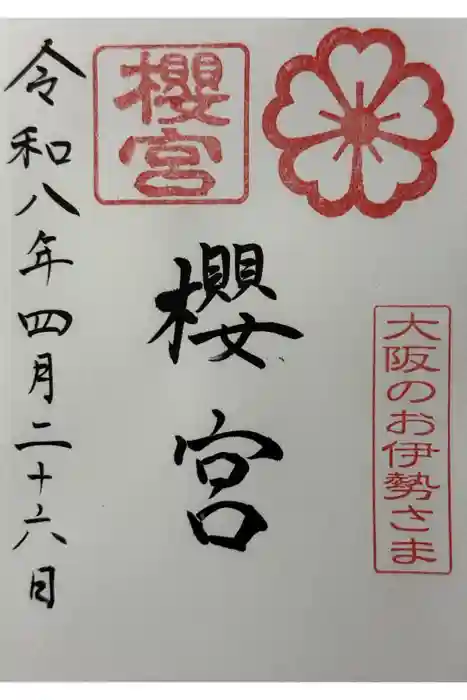 大阪のお伊勢さま
櫻宮
櫻宮
令和八年四月二十六日